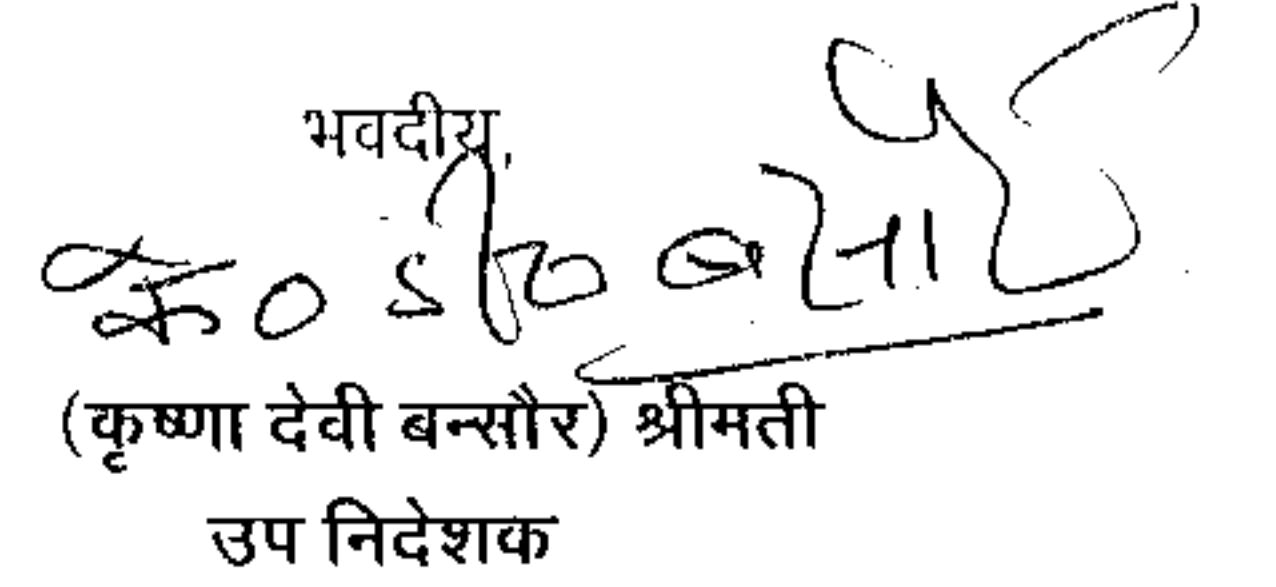 भवदीय,
(कृष्णा देवी बन्सौर) श्रीमती
उप निदेशक